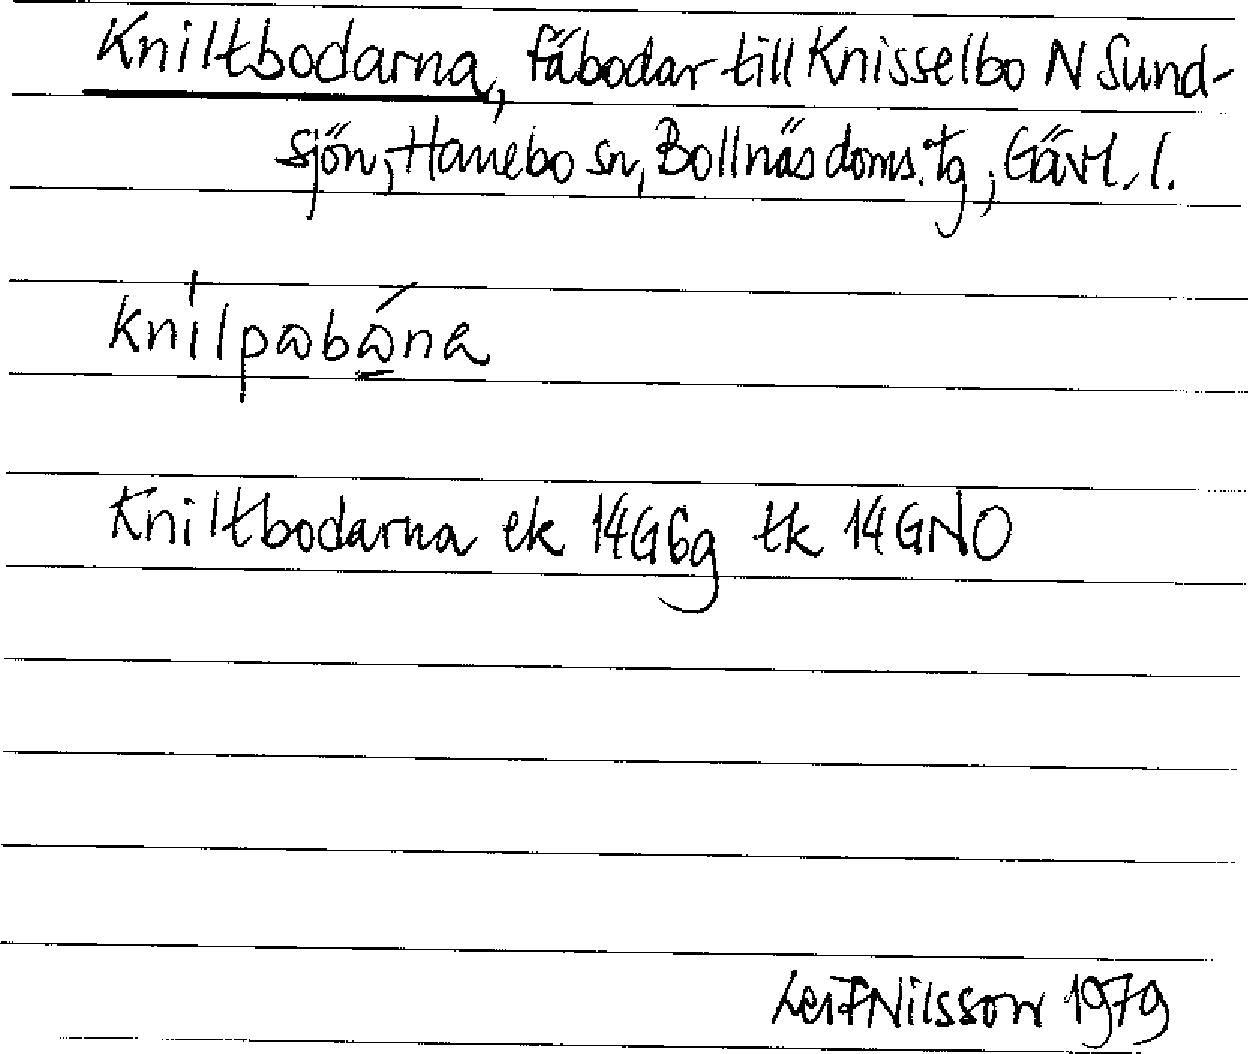 Kniltbodarna, fäbodar till Knisselbo N Sund-
sjön, Hanebo sn, Bollnäs doms. tg, Gävl. l.
Kniltbodarna ek 14G6g tk 14GNO
Leif Nilsson 1979